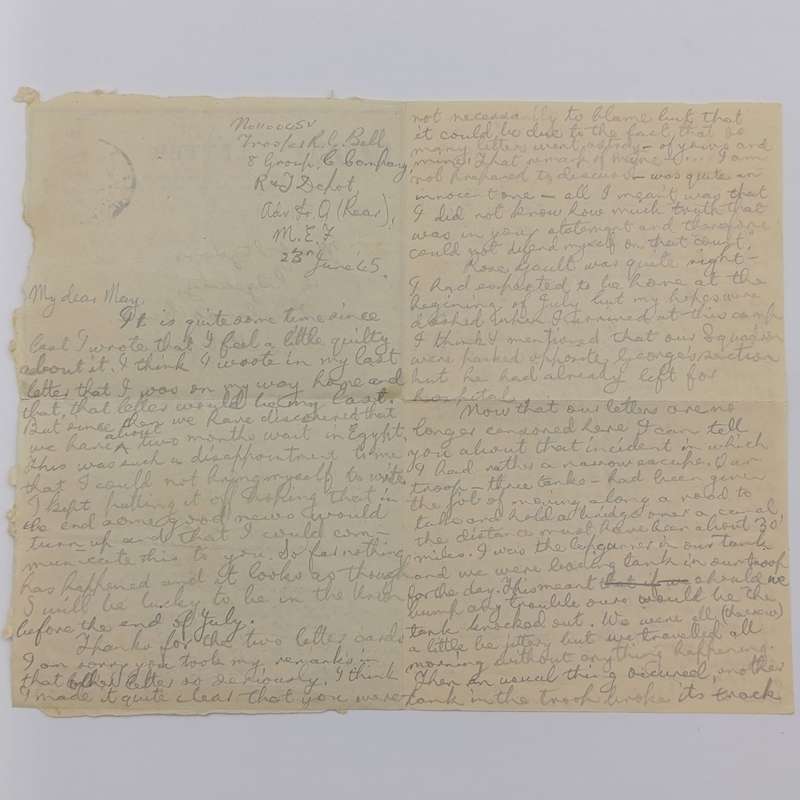 No 110045V
Trooper R. C. Bell
8 Group, C Company,
R & J Depot,
Adv. (Rear),
M.E.F
23rd June 45.
My dear May,
It is quite some time since
last I wrote that I feel a little guilty
about it. I think I wrote in my last
letter that I was on my way home and
that, that letter would be my last.
But since then we have discovered that
we have about two months wait in Egypt.
This was such a disappointment to me
that I could not bring myself to write
I kept putting it off hoping that in
the end some good news would
turn up and that I would com-
municate this to you. So far nothing
has happened and it looks as though
I will be lucky to be in the Union
before the end of July.
Thanks for the two letter cards
I am sorry you took my remarks in
that letter so seriously. I think
I made it quite clear that you were
not necessarily to blame but that
it could be due to the fact, that so
many letters went astray - of yours and
mine. That remark of mine "... I am
not prepared to discuss - was quite an
innocent one - all I meant was that
I did not know how much truth that
was in your statement and therefore
could not defend myself on that count.
Rose Gault was quite right -
I had expected to be home at the
begining of July but my hopes were
dashed when I arrived at this camp
I think I mentioned that our Squadron
were parked opposite George's section
but he had already left for
hospital.
Now that our letters are no
longer censored here I can tell
you about that incident in which
I had rather a narrow escape. Our
troop - three tanks - had been given
the job of moving along a road to
take and hold a bridge over a canal,
the distance must have been about 30
miles. I was the lapgunner in our tank
and we were leading tank in our troop
for the day. This meant that if we should we
bump any trouble ours would be the
tank knocked out. We were all (the crew)
a little bit jittery but we travelled all
morning without anything happening.
Then an usual thing occured, another
tank in the troop broke its track